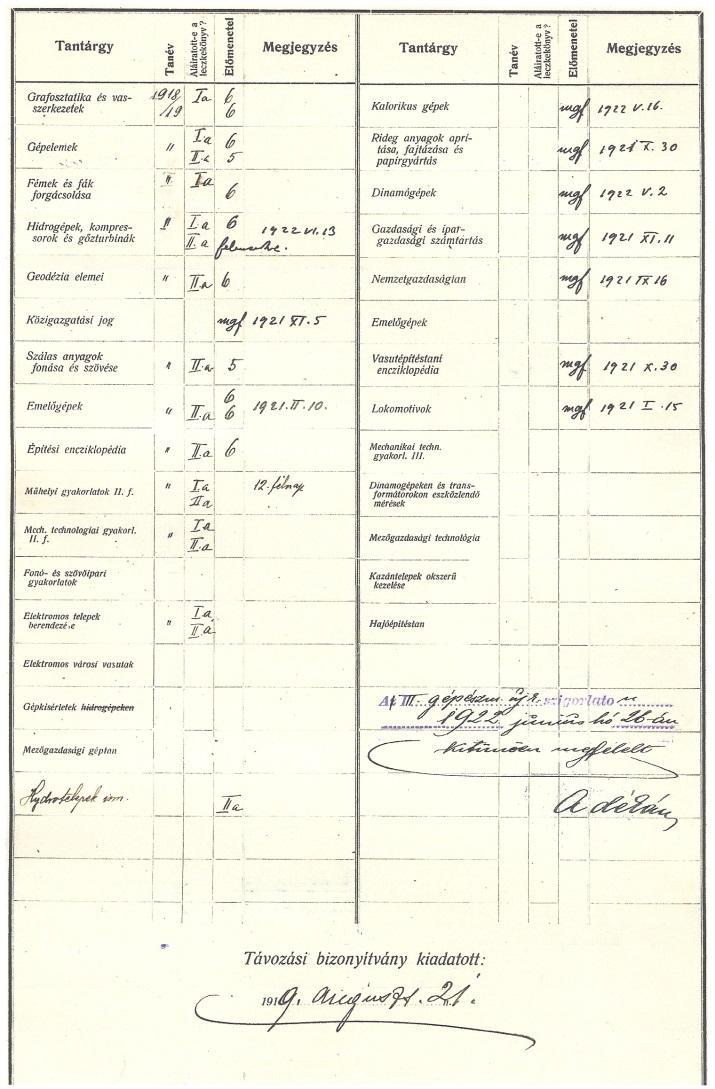 Tantárgy Tanév Aláiratott-e a leczkekönyv? Előmenetel Megjegyzés
Grafosztatika és vas- 1918 Ia 6
szerkezetek /19 6
Gépelemek " Ia 6
II.a 5
Fémek és fák " Ia
forgácsolása 6
Hidrogépek, kompres- " Ia 6 1922 VI.13
sorok és gőzturbinák II a
Geodézia elemei " II.a 6
Közigazgatási jog mgf 1921 XI.5
Szálas anyagok
fonása és szövése " II.a 5
6
Emelőgépek " II.a 6 1921.II.10.
Építési encziklopédia " II.a 6
Műhelyi gyakorlatok II. f. " I.a 12. félnap
II a
Mech. technologiai gyakorl. I.a
II. f. " II.a
Fonó- és szövőipari
gyakorlatok
Elektromos telepek Ia
berendezése " II a
Elektromos városi vasutak
Gépkisérletek hidrogépeken
Mezőgazdasági géptan
Hydrotelepek IIa
Tantárgy Tanév Aláiratott-e a leczkekönyv? Előmenetel Megjegyzés
Kalorikus gépek mgf 1922 V.16.
Rideg anyagok aprí-
tása, fajtázása és mgf 1921 X.30
papirgyártás
Dinamógépek mgf 1922 V.2
Gazdasági és ipar-
gazdasági számtartás mgf 1921 XI.11
Nemzetgazdaságtan mgf 1921 IX 16
Emelőgépek
Vasutépitéstani
encziklopédia mgf 1921 X.30
Lokomotivok mgf 1921 I.15
Mechanikai techn.
gyakorl. III.
Dinamogépeken és trans-
formátorokon eszközlendő
mérések
Mezőgazdasági technológia
Kazántelepek okszerű
kezelése
Hajóépitéstan
A III. gépészm. új r. szigorlaton
1922 junius hó 26-án
kitünően megfelelt
A dékán
Távozási bizonyítvány kiadatott:
1919. auguszt. 21.